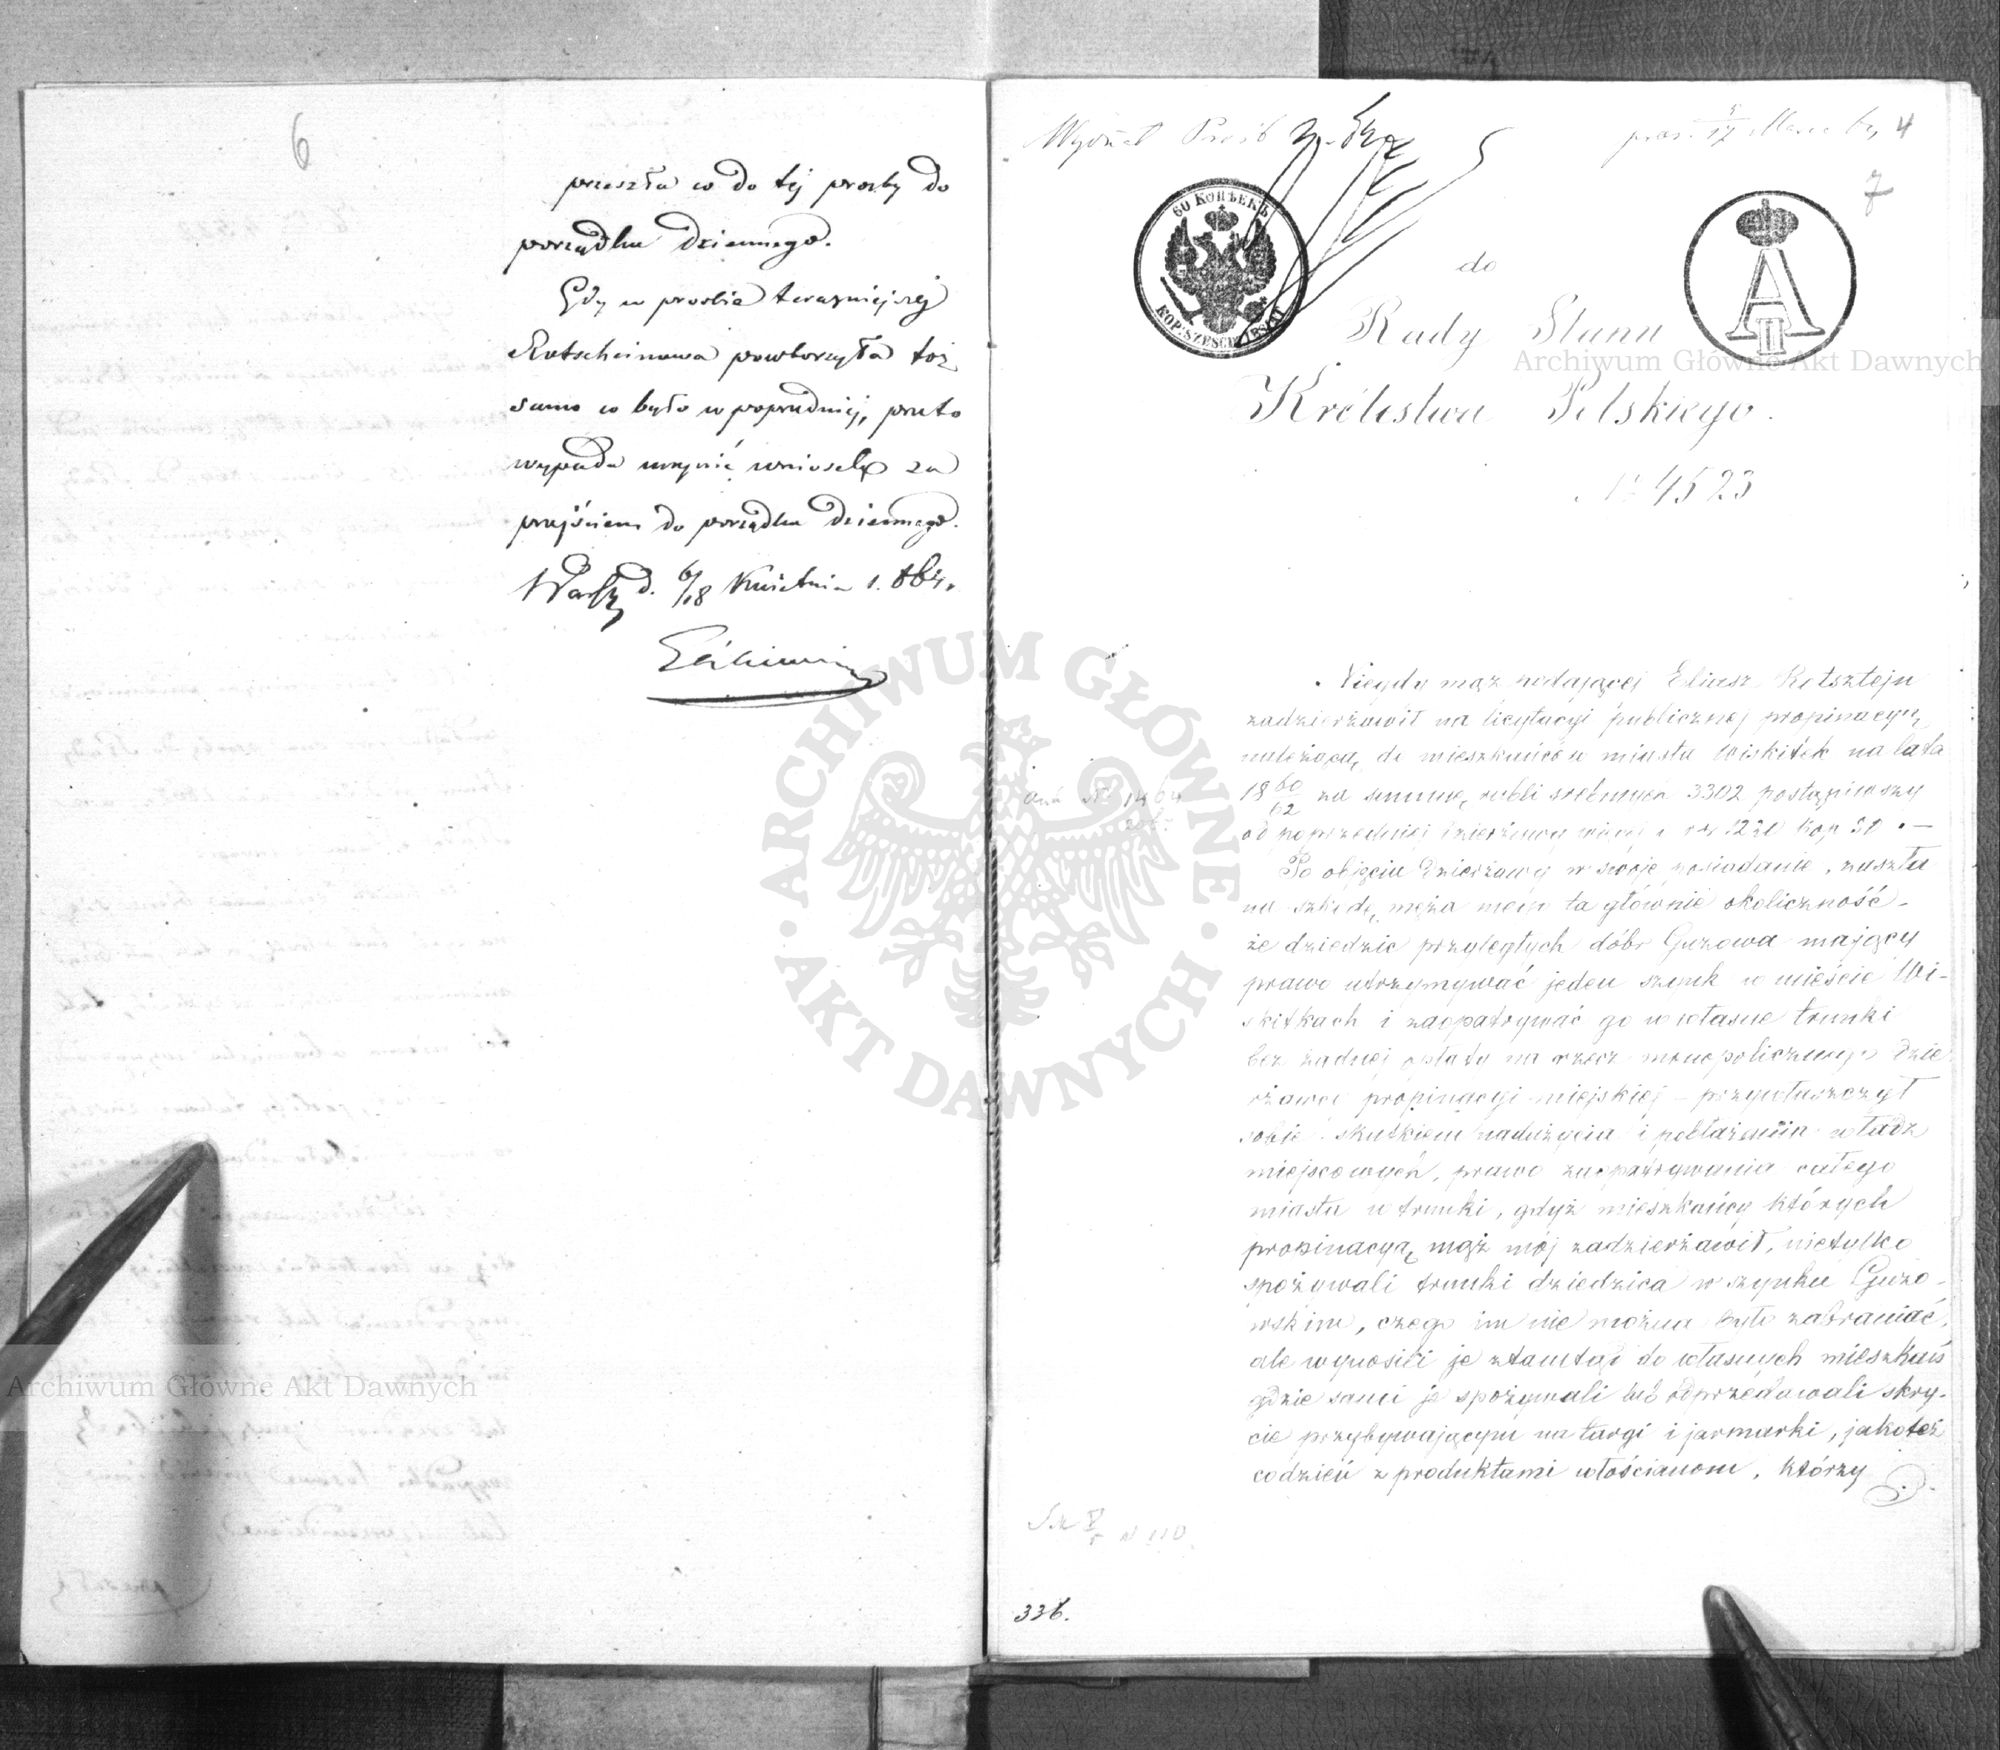 6
przeszła co do tej prośby do
porządku dziennego.
Gdy w prośbie teraźniejszej
Rotscheinowa powtorzyła toż
samo co było w poprzedniej, przeto
wypada uczynić wniosek za
przejściem do porządku dziennego.
Warsz. d. 6/18 Kwietnia 1864.
Wydział Prośb
4
7
60 КОПѢЕКЪ
KOP: SZEŚĆDZIESIĄT
A
II
do
Rady Stanu
Królestwa Polskiego.
№ 4523
Niegdy mąż podającej Eliasz Rotsztejn
zadzierżawił na licytacyi publicznej propinacyę
należącą do mieszkańców miasta Wiskitek na lata
18 60/62 za summę rubli srebrnych 3302 postąpiwszy
od poprzedniej dzierżawy więcej o rs 1221 kop
Po objęciu dzierżawy w swoje posiadanie, zaszła
na szkodę męża mego ta głównie okoliczność -
że dziedzic przyległych dóbr Guzowa mający
prawo utrzymywać jeden szynk w mieście Wi-
skitkach i zaopatrywać go w własne trunki
bez żadnej opłaty na rzecz monopolicznego dzie
rżawcy propinacyi miejskiej - przywłaszczył
sobie skutkiem nadużycia i pobłażania władz
miejscowych, prawo zaopatrywania całego
miasta w trunki, gdyż mieszkańcy których
propinacyą mąż mój zadzierżawił, nietylko
spożywali trunki dziedzica w szynku Guzo-
wskim, czego im nie można było zabraniać,
ale wynosili je ztamtąd do własnych mieszkań
gdzie sami je spożywali lub odprzedawali skry-
cie przybywającym na targi i jarmarki, jakoteż
codzień z produktami włościanom, którzy
№ 110
336.
Archiwum Główne Akt Dawnych
Archiwum Główne Akt Dawnych
ARCHIWUM GŁÓWNE
AKT DAWNYCH